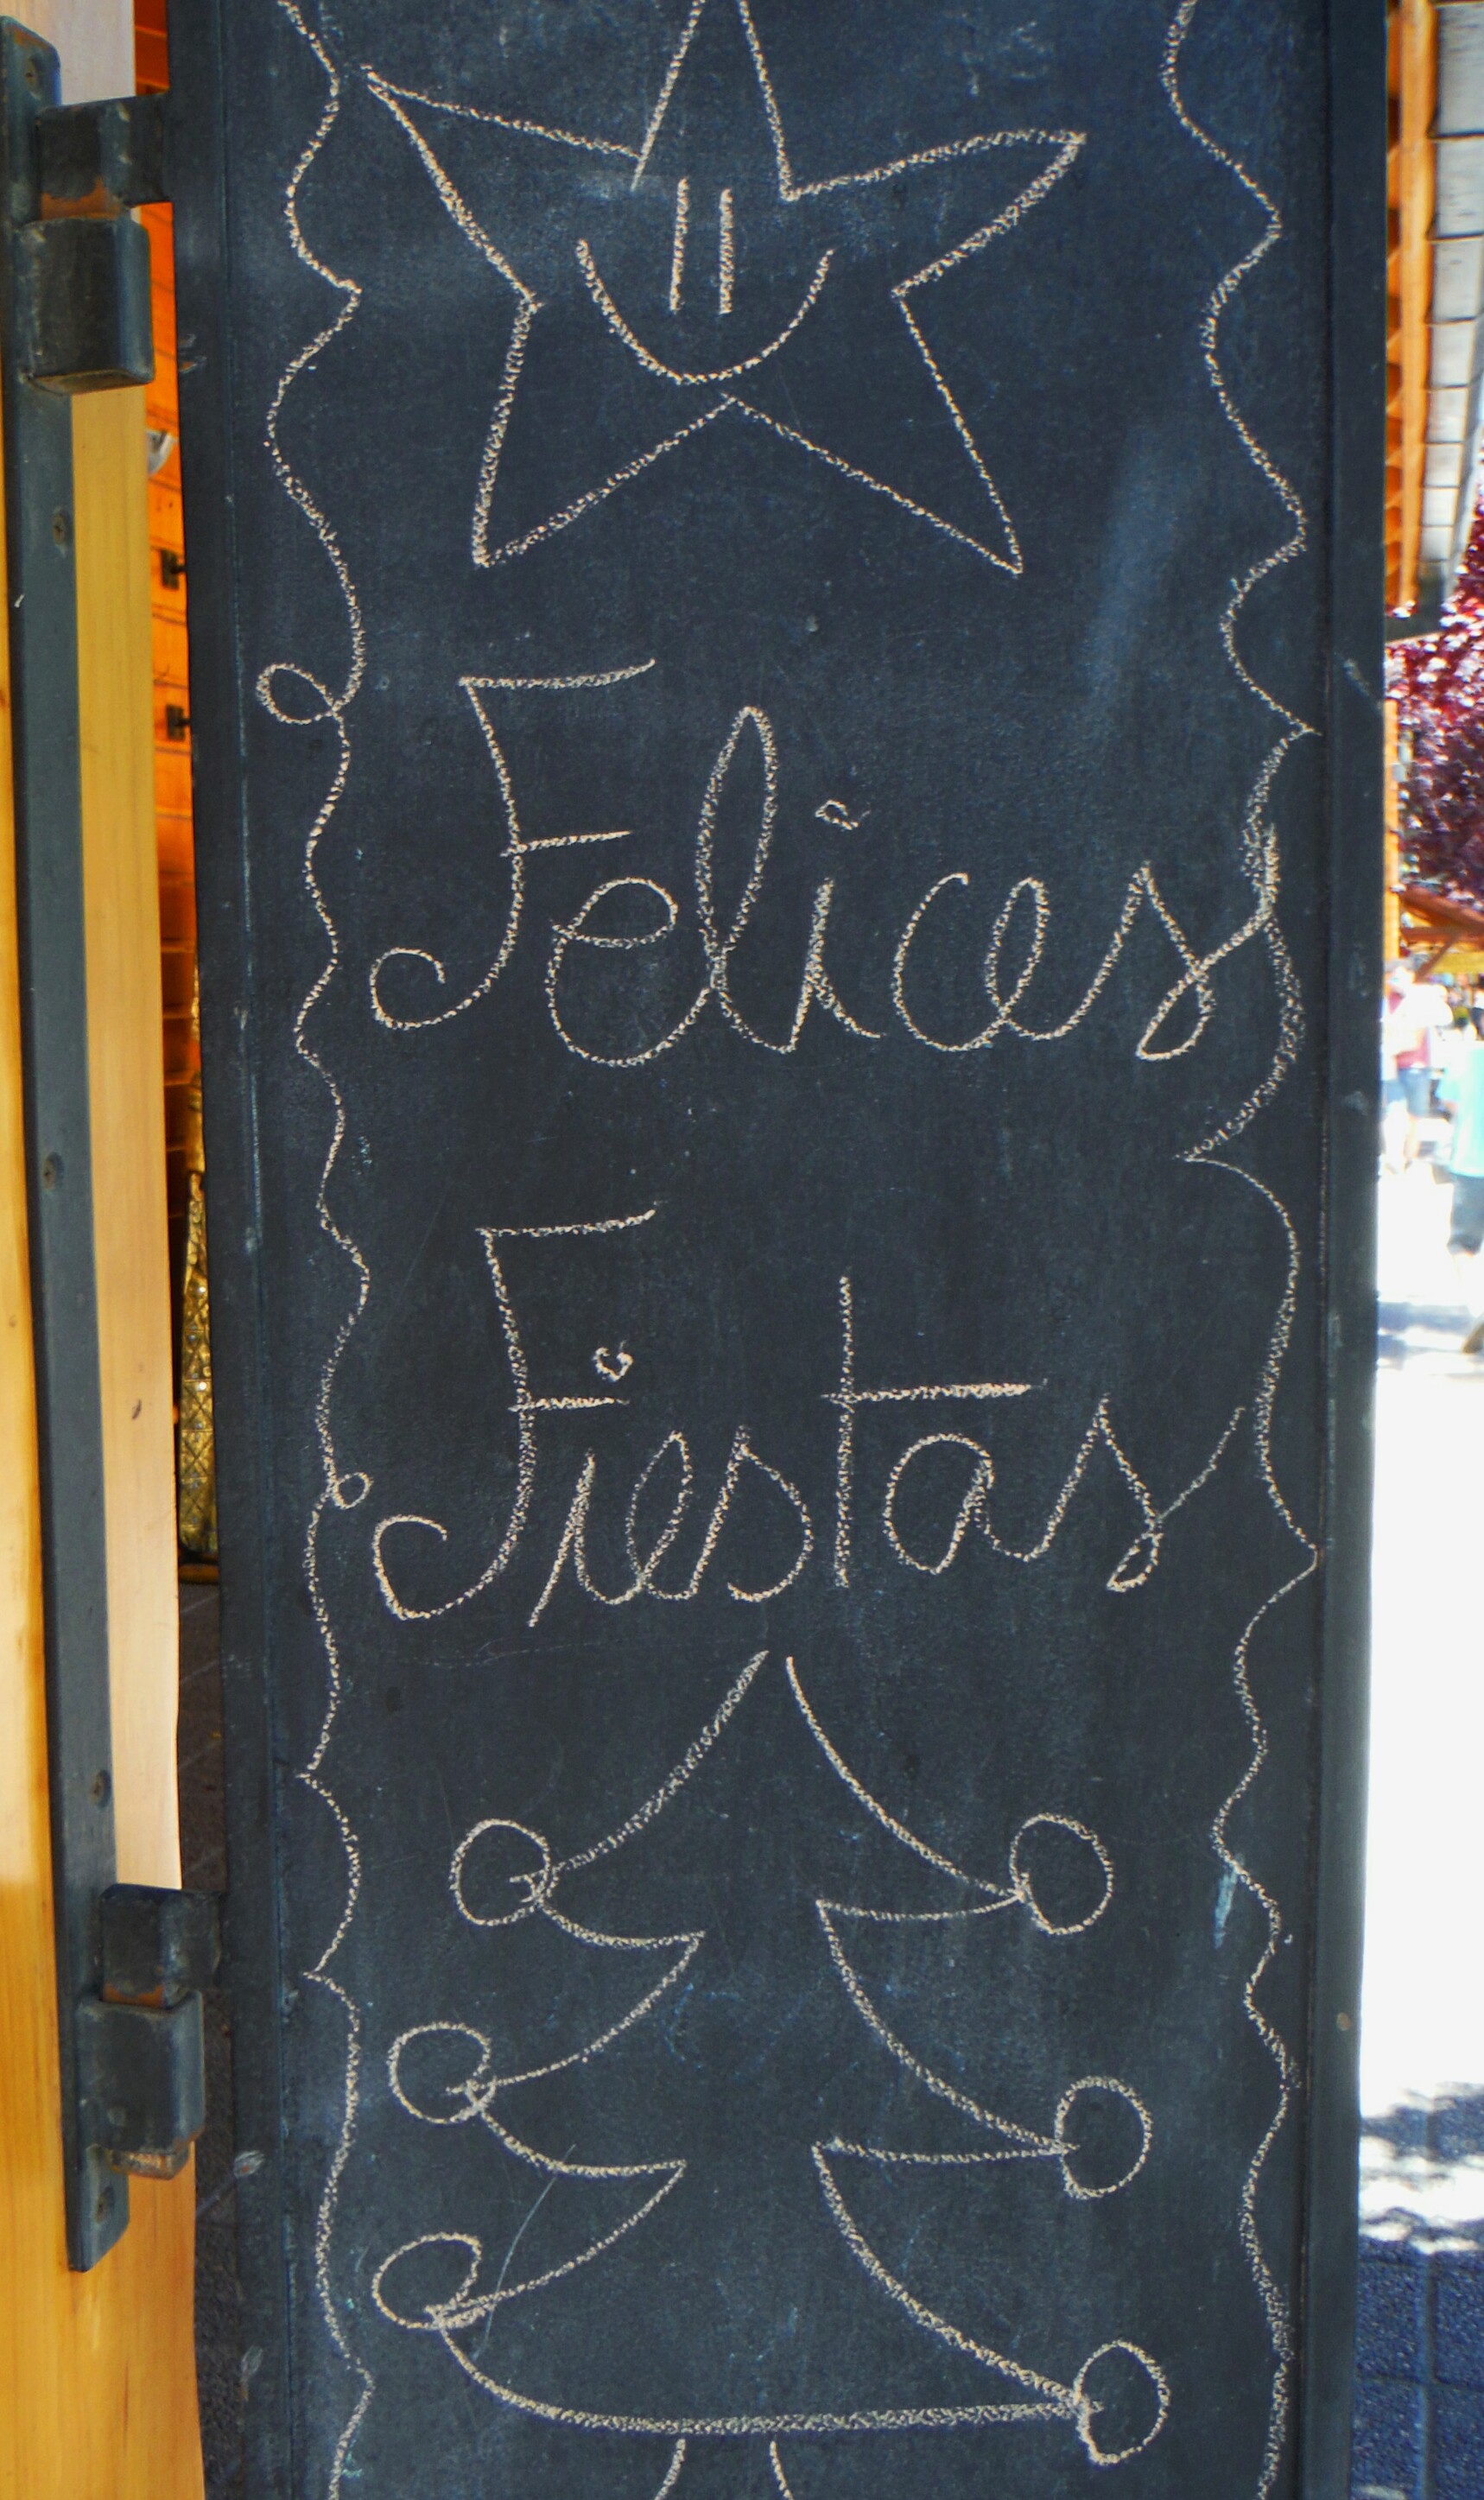 Felices
Fiestas